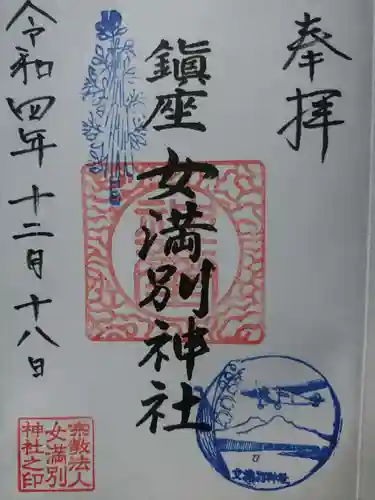 奉拝
鎮座
女満別神社
令和四年十二月十八日
宗教法人
女満別
神社之印
女満別神社